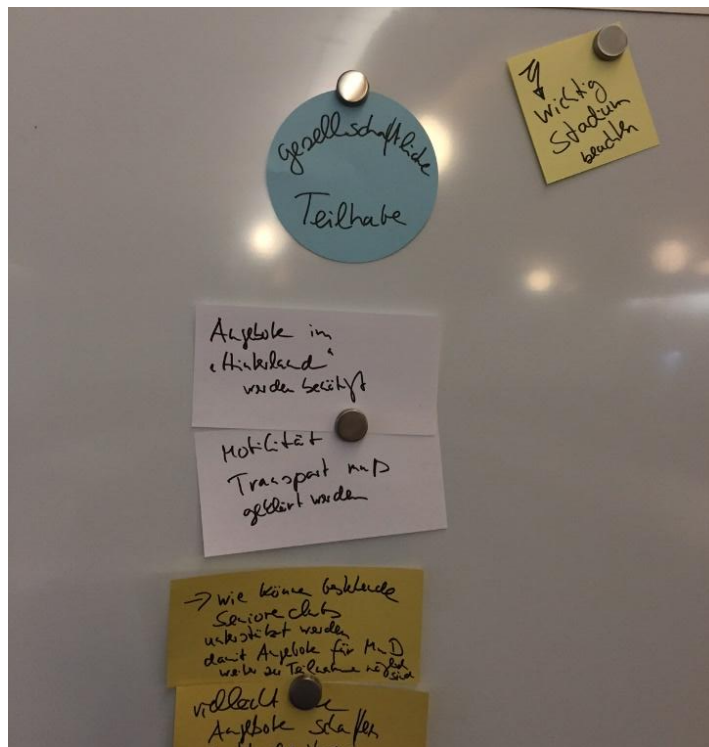 gesellschaftliche
Teilhabe
wichtig
Stadium
beachten
Angebote im
"Hinterland"
werden benötigt
Mobilität
Transport muß
geklärt werden
→ wie können bestehende
Seniorenclubs
unterstützt werden
damit Angebote für MmD
weiter zur Teilnahme möglich
sind
vielleicht
Angebote schaffen